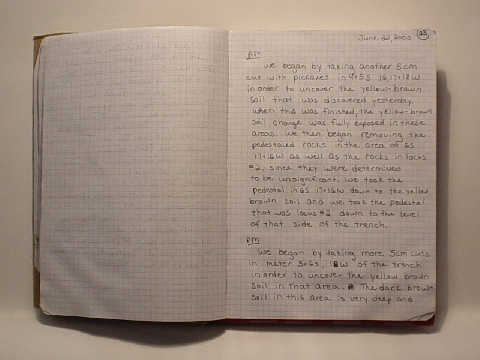 June 22, 2000 23
AM
We began by taking another 5cm
cut with pickaxes in 4+5S 16,17+18W
in order to uncover the yellow-brown
soil that was discovered yesterday.
When this was finished, the yellow-brown
soil change was fully exposed in these
areas. We then began removing the
pedestaled rocks in the area of 6S
17+16W as well as the rocks in locus
#2, since they were determined
to be unsignificant. We took the
pedestal in 6S 17+16W down to the yellow
brown soil and we took the pedestal
that was locus #2 down to the level
of that side of the trench.
PM
We began by taking more 5cm cuts
in meter 5+6S, 18W of the trench
in order to uncover the yellow brown
soil in that area. The dark brown
soil in this area is very deep and